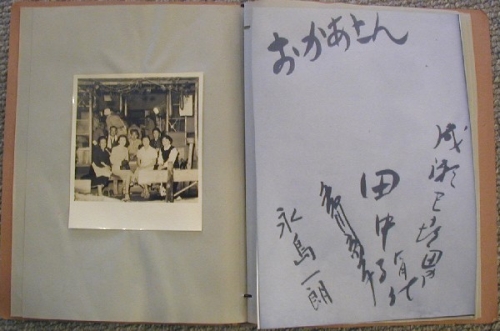 おかあさん
成瀬巳喜男
田中絹代
永島一朗